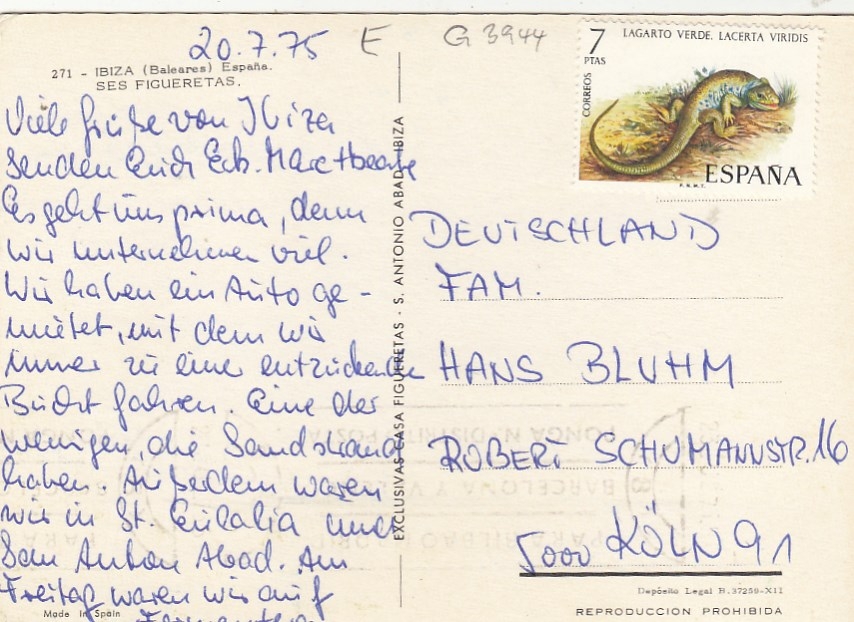 20.7.75 E G 3944
271 - IBIZA (Baleares) España.
SES FIGUERETAS.
Viele Grüße von Ibiza
senden Euch Eck. Marc + Beate
Es geht uns prima, denn
wir unternehmen viel.
Wir haben ein Auto ge-
mietet, mit dem wir
immer zu einer entzückenden
Bucht fahren. Eine der
wenigen, die Sandstrand
haben. Außerdem waren
wir in St. Eulalia und
San Antoni Abad. Am
Freitag waren wir auf
Formentera
Made in Spain
EXCLUSIVAS CASA FIGUERETAS - S. ANTONIO ABAD - IBIZA
7 PTAS
LAGARTO VERDE. LACERTA VIRIDIS
CORREOS
F.N.M.T.
ESPAÑA
DEUTSCHLAND
FAM.
HANS BLUHM
ROBERT SCHUMANNSTR. 16
5000 KÖLN 91
Depósito Legal B. 37259-XII
REPRODUCCION PROHIBIDA